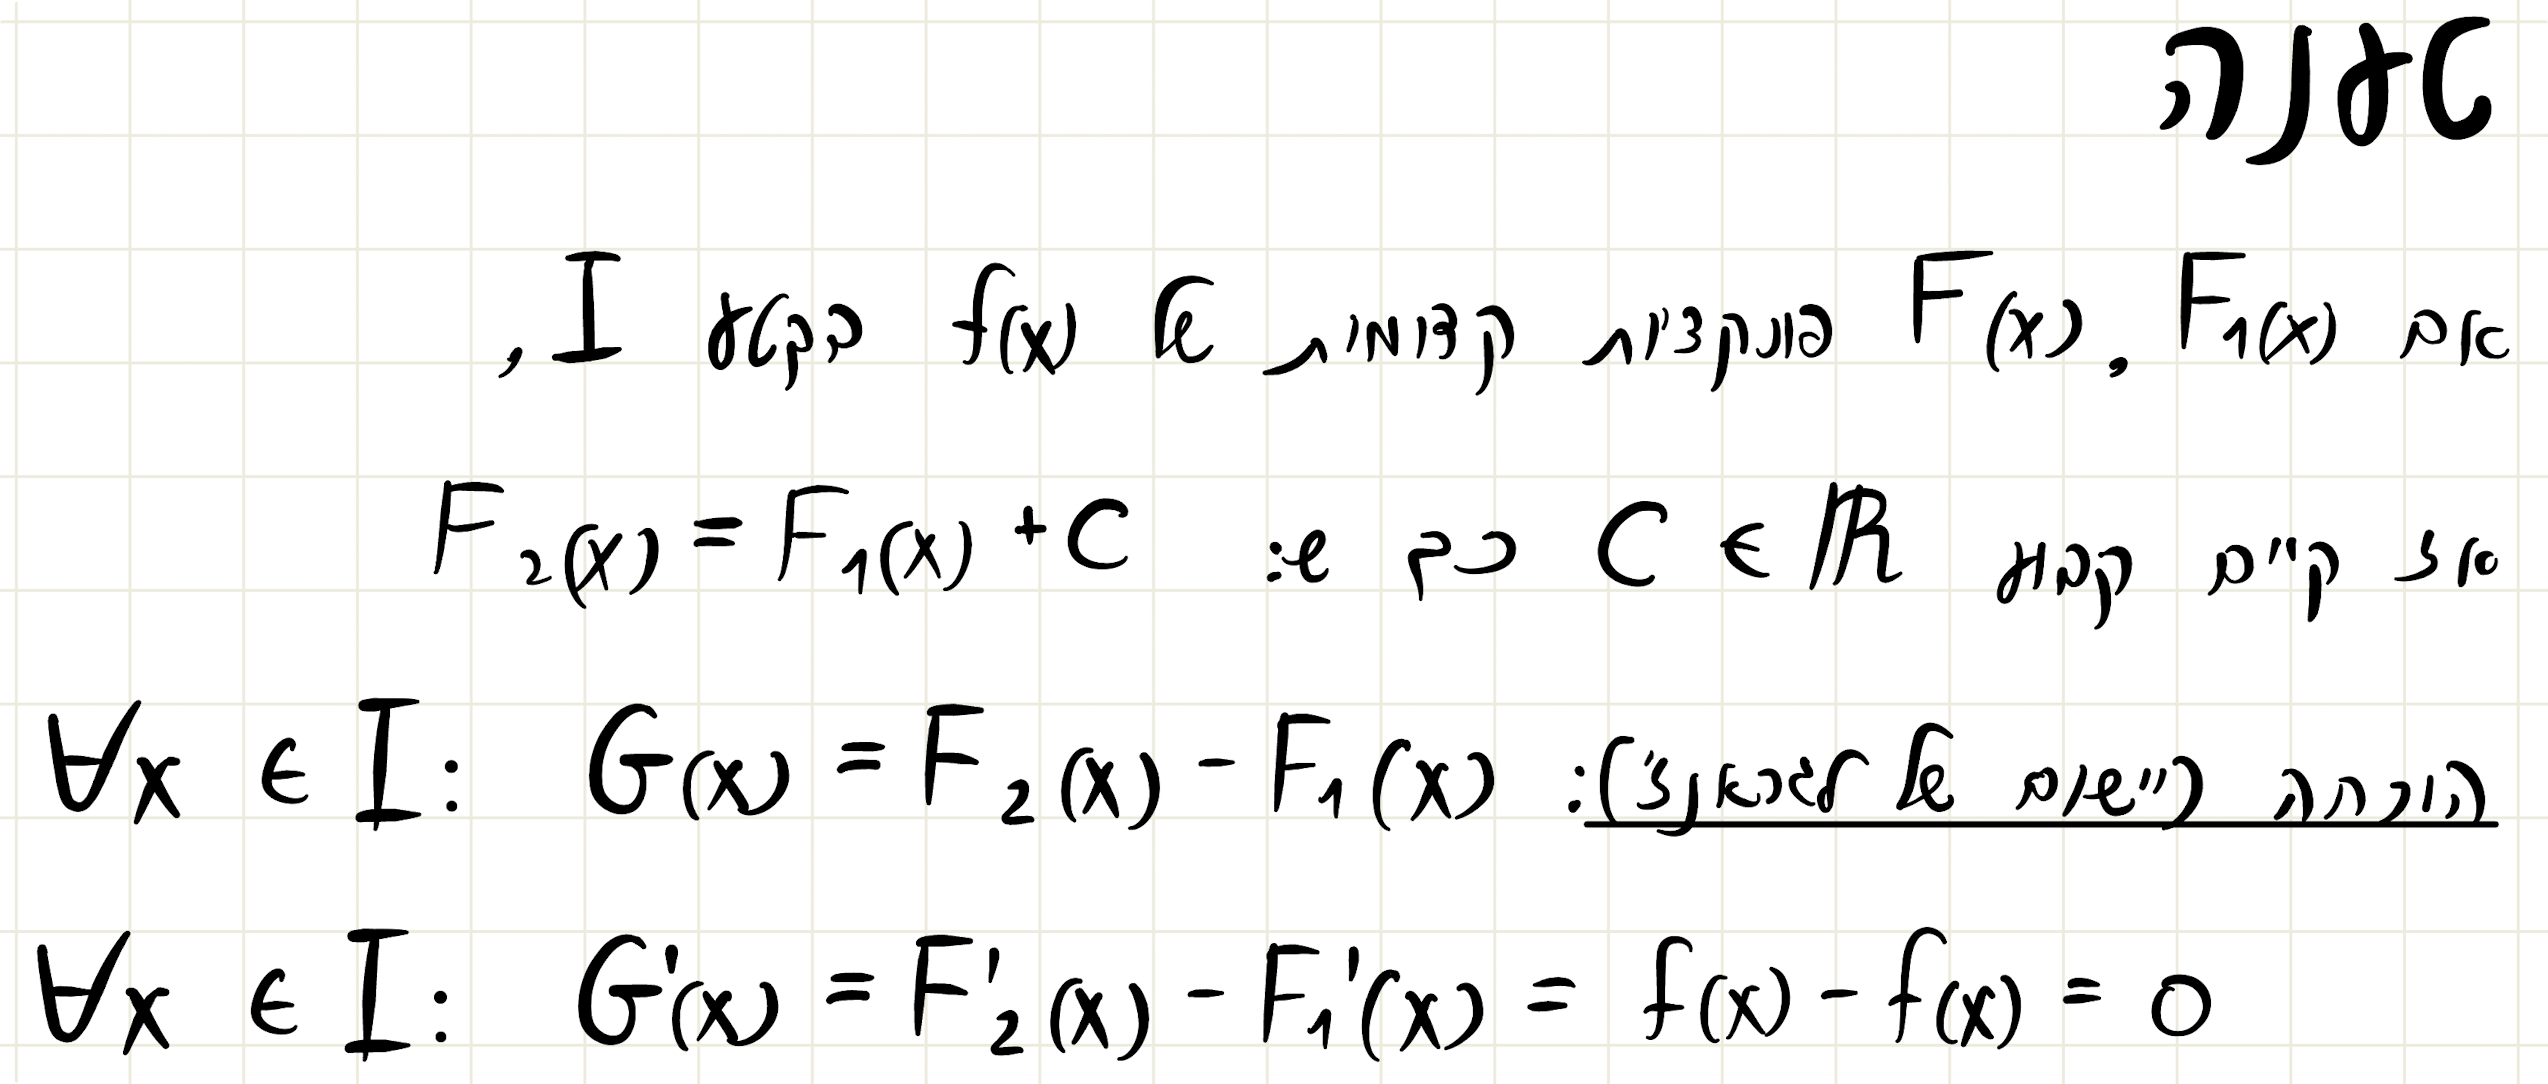 טענה
אם F₁(x), F(x) פונקציות קדומות של f(x) בקטע I,
אז קיים קבוע C ∈ ℝ כך ש: F₂(x) = F₁(x) + C
הוכחה (יישום של לגראנז'): ∀x ∈ I: G(x) = F₂(x) - F₁(x)
∀x ∈ I: G'(x) = F'₂(x) - F₁'(x) = f(x) - f(x) = 0